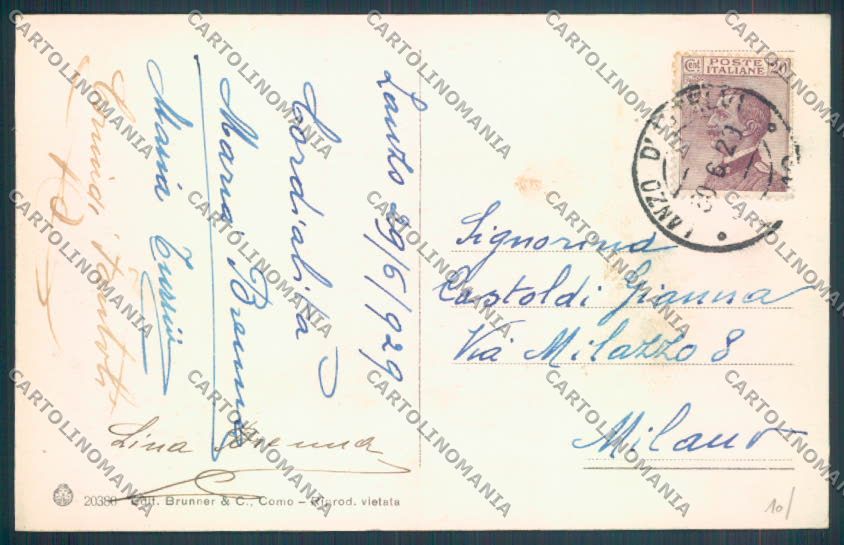 Lanzo 29/6/929
Cordialità
Maria Brenna
Maria
Lina Brenna
20380 Edit. Brunner & C., Como – Riprod. vietata
POSTE
ITALIANE
Cent 20
LANZO D'INTELVI
30.6.29
Signorina
Castoldi Gianna
Via Milazzo 8
Milano
10/
CARTOLINOMANIA